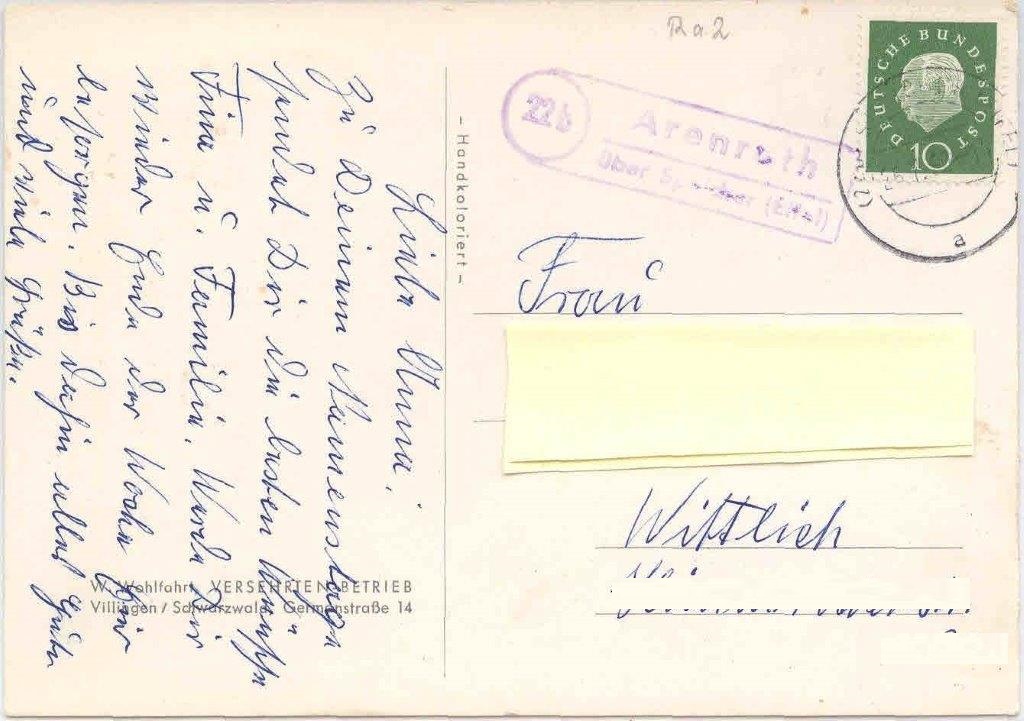 Ra 2
DEUTSCHE BUNDESPOST
10
a
22b
Arenrath
über Sp (Eifel)
- Handkoloriert -
Liebe Anna!
Zu Deinem Namenstage
sendet Dir die besten Wünsche
Fina u. Familie. Werde Dir
wieder Ende der Woche Eier
besorgen. Bis dahin alles Gute
und viele Grüße.
Frau
Wittlich
W. Wohlfahrt, VERSEHRTEN-BETRIEB
Villingen / Schwarzwald, Germanstraße 14